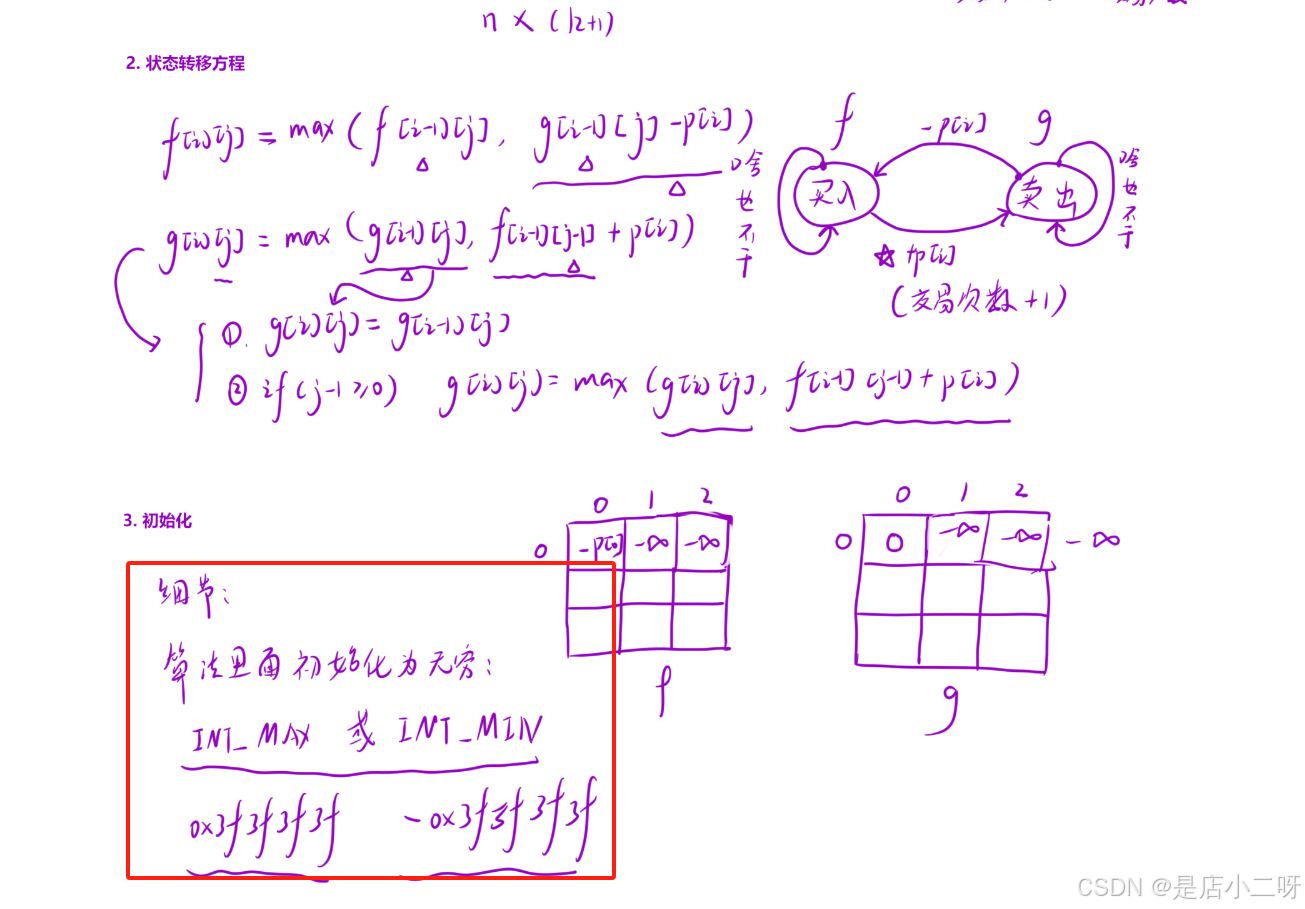 n × (k+1)
2. 状态转移方程
f[i][j] = max (f[i-1][j], g[i-1][j] - p[i])
g[i][j] = max (g[i-1][j], f[i-1][j-1] + p[i])
① g[i][j] = g[i-1][j]
② if (j-1≥0) g[i][j] = max (g[i][j], f[i-1][j-1] + p[i])
f -p[i] g
啥也不干 买入 卖出 啥也不干
☆ +p[i]
(交易次数+1)
3. 初始化
0 1 2
0 -p[0] -∞ -∞
f
0 1 2
0 0 -∞ -∞ -∞
g
细节:
算法里面初始化为无穷:
INT_MAX 或 INT_MIN
0x3f3f3f3f -0x3f3f3f3f
CSDN @是店小二呀